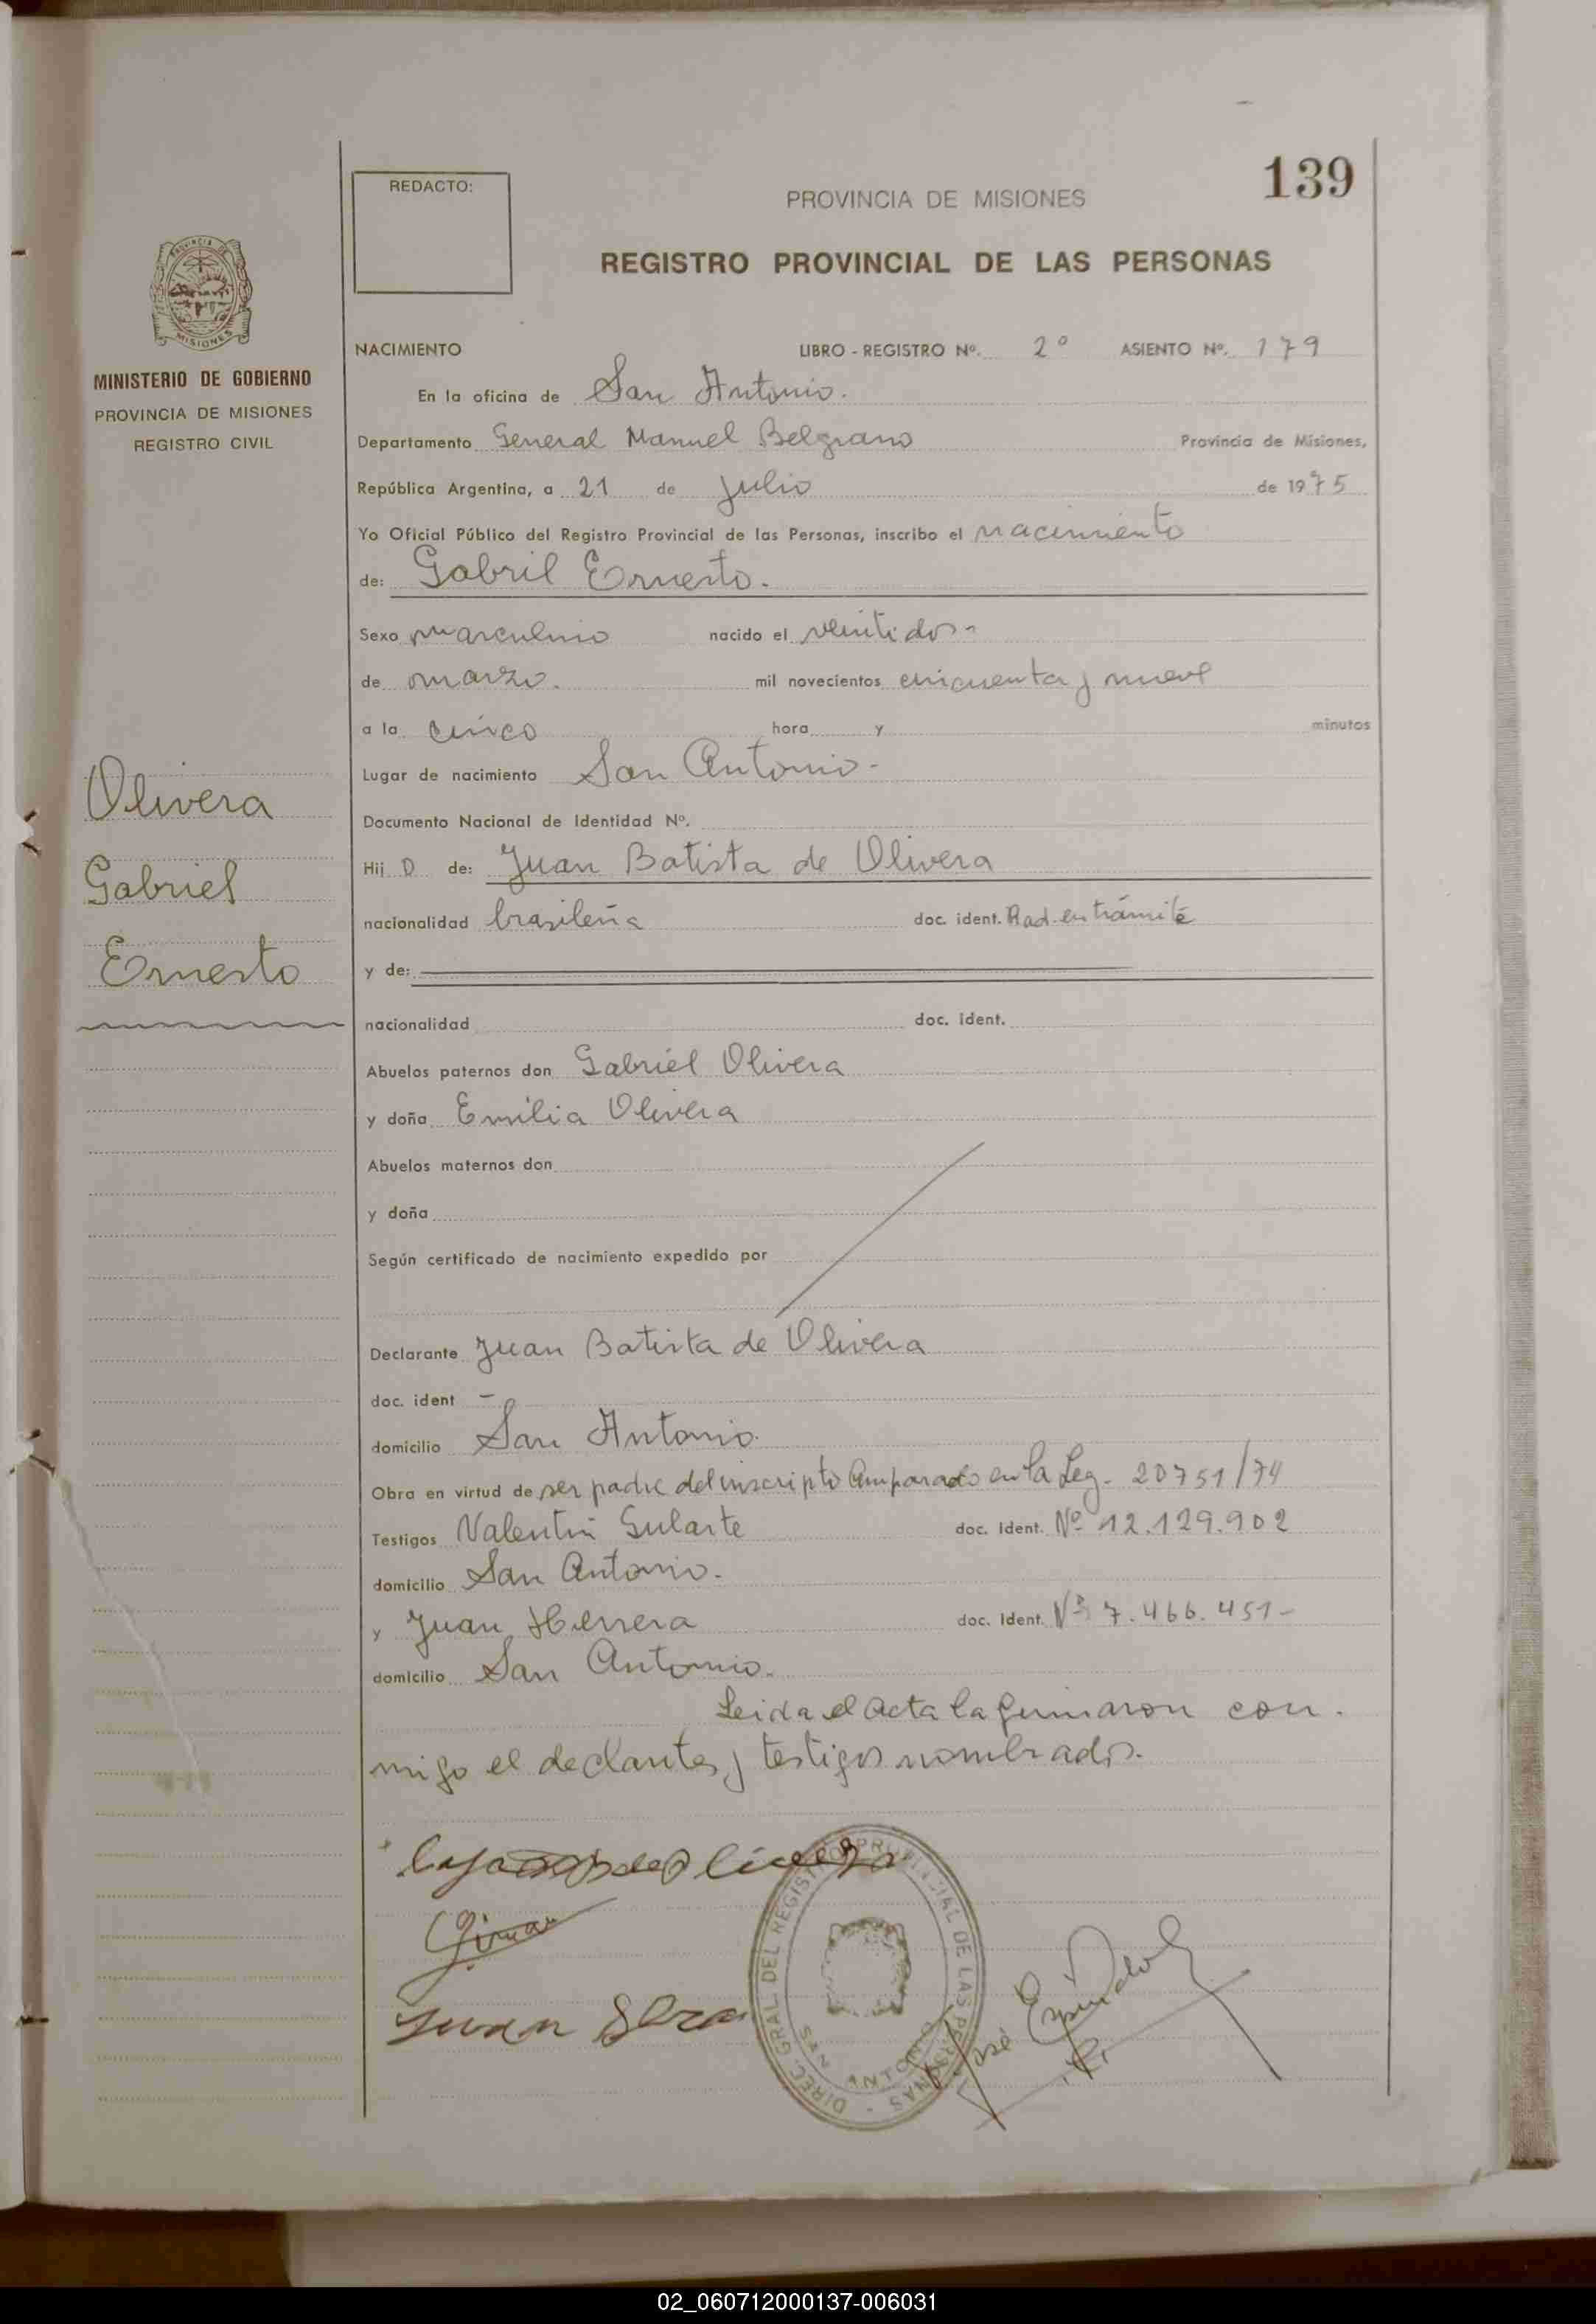 139
REDACTO:
PROVINCIA DE MISIONES
REGISTRO PROVINCIAL DE LAS PERSONAS
PROVINCIA DE
MISIONES
MINISTERIO DE GOBIERNO
PROVINCIA DE MISIONES
REGISTRO CIVIL
NACIMIENTO LIBRO - REGISTRO Nº. 2º ASIENTO Nº. 179
En la oficina de San Antonio.
Departamento General Manuel Belgrano Provincia de Misiones,
República Argentina, a 21 de Julio de 1975
Yo Oficial Público del Registro Provincial de las Personas, inscribo el nacimiento
de: Gabril Ernesto.
Sexo masculino nacido el veintidos-
de marzo. mil novecientos cincuenta y nueve
a la cinco hora y minutos
Lugar de nacimiento San Antonio-
Documento Nacional de Identidad Nº.
Hij O de: Juan Batista de Olivera
nacionalidad brasileña doc. ident. Rad. en trámite
y de:
nacionalidad doc. ident.
Abuelos paternos don Gabriel Olivera
y doña Emilia Olivera
Abuelos maternos don
y doña
Según certificado de nacimiento expedido por
Declarante Juan Batista de Olivera
doc. ident -
domicilio San Antonio.
Obra en virtud de ser padre del inscripto Amparado en la Ley- 20751/74
Testigos Valentin Gularte doc. Ident. Nº 12.129.902
domicilio San Antonio.
y Juan Herrera doc. Ident. Nº 7.466.451-
domicilio San Antonio.
Leida el Acta la firmaron con-
migo el declante y testigos nombrados.
Olivera
Gabriel
Ernesto
Juan
DIREC. GRAL. DEL REGISTRO PROVINCIAL DE LAS PERSONAS -
SAN ANTONIO
José Espindola
02_060712000137-006031